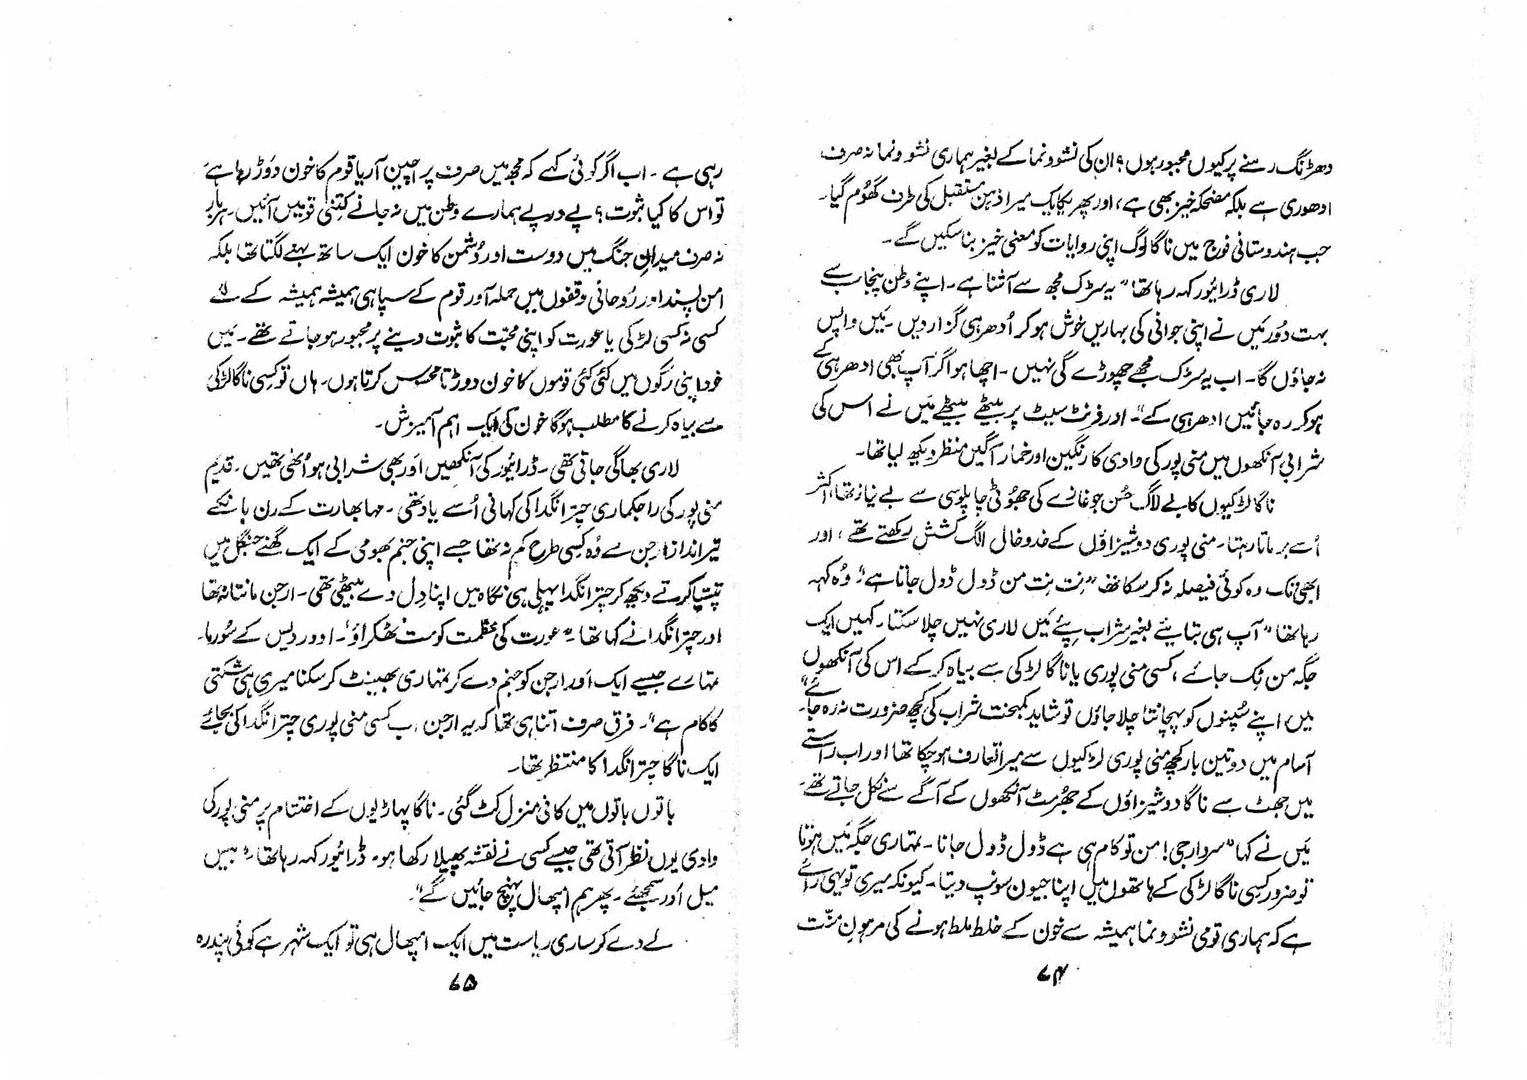 دھڑنگ رہنے پر کیوں مجبور ہوں؟ ان کی نشوونما کے بغیر ہماری نشوونما نہ صرف
ادھوری ہے بلکہ مضحکہ خیز بھی ہے، اور پھر یکایک میرا ذہن مستقبل کی طرف گھوم گیا۔
جب ہندوستانی فوج میں ناگا لوگ اپنی روایات کو معنی خیز بنا سکیں گے۔
لاری ڈرائیور کہہ رہا تھا "یہ سڑک مجھ سے آشنا ہے۔ اپنے وطن پنجاب سے
بہت دُور مَیں نے اپنی جوانی کی بہاریں خوش ہو کر اُدھر ہی گزار دیں۔ مَیں واپس
نہ جاؤں گا۔ اب یہ سڑک مجھے چھوڑے گی نہیں۔ اچھا ہو اگر آپ بھی ادھر ہی کے
ہو کر رہ جائیں ادھر ہی کے"۔ اور فرنٹ سیٹ پر بیٹھے بیٹھے مَیں نے اس کی
شرابی آنکھوں میں منی پور کی وادی کا رنگین اور خمار آگیں منظر دیکھ لیا تھا۔
ناگا لڑکیوں کا بے لاگ حُسن جو غازے کی جھوٹی چاپلوسی سے بے نیاز تھا، اکثر
اُسے برماتا رہتا۔ منی پوری دوشیزاؤں کے خدوخال الگ کشش رکھتے تھے، اور
ابھی تک وہ کوئی فیصلہ نہ کر سکا تھا "نِت نِت من ڈول ڈول جاتا ہے"، وُہ کہہ
رہا تھا "آپ ہی بتایئے بغیر شراب پیٔے مَیں لاری نہیں چلا سکتا۔ کہیں ایک
جگہ من ٹِک جائے، کسی منی پوری یا ناگا لڑکی سے بیاہ کر کے اس کی آنکھوں
میں اپنے سُپنوں کو پہچانتا چلا جاؤں تو شاید کمبخت شراب کی کچھ ضرورت نہ رہ جائے"
آسام میں دو تین بار کچھ منی پوری لڑکیوں سے میرا تعارف ہو چکا تھا اور اب راستے
میں جھٹ سے ناگا دوشیزاؤں کے جھرمٹ آنکھوں کے آگے سے نکل جاتے تھے۔
مَیں نے کہا "سردار جی! من تو کام ہی ہے ڈول ڈول جانا۔ تمہاری جگہ مَیں ہوتا
تو ضرور کسی ناگا لڑکی کے ہاتھوں میں اپنا جیون سونپ دیتا۔ کیونکہ میری تو یہی رائے
ہے کہ ہماری قومی نشوونما ہمیشہ سے خون کے خلط ملط ہونے کی مرہونِ منّت
۷۴
رہی ہے۔ اب اگر کوئی کہے کہ مجھ میں صرف پراچین آریا قوم کا خون دَوڑ رہا ہے
تو اس کا کیا ثبوت؟ پے در پے ہمارے وطن میں نہ جانے کِتنی قومیں آئیں۔ ہر بار
نہ صرف میدانِ جنگ میں دوست اور دُشمن کا خون ایک ساتھ بہنے لگتا تھا بلکہ
امن پسند اور رُوحانی وقفوں میں حملہ آور قوم کے سپاہی ہمیشہ ہمیشہ کے لئے
کسی نہ کسی لڑکی یا عورت کو اپنی محبّت کا ثبوت دینے پر مجبور ہو جاتے تھے۔ مَیں
خود اپنی رگوں میں کئی کئی قوموں کا خون دوڑتا محسوس کرتا ہوں۔ ہاں تو کسی ناگا لڑکی
سے بیاہ کرنے کا مطلب ہو گا خون کی ایک اہم آمیزش۔
لاری بھاگی جاتی تھی۔ ڈرائیور کی آنکھیں اور بھی شرابی ہو اُٹھی تھیں۔ قدیم
منی پور کی راجکماری چترانگدا کی کہانی اُسے یاد تھی۔ مہا بھارت کے رن بانکے
تیر انداز ارجن سے وُہ کسی طرح کم نہ تھا جسے اپنی جنم بھومی کے ایک گھنے جنگل میں
تپتیا کرتے دیکھ کر چترانگدا پہلی ہی نگاہ میں اپنا دِل دے بیٹھی تھی۔ ارجن مانتا نہ تھا
اور چترانگدا نے کہا تھا "عورت کی عظمت کو مت ٹھکراؤ۔ او دور دیس کے سُورما۔
تمہارے جیسے ایک اور ارجن کو جنم دے کر تمہاری بھینٹ کر سکنا میری ہی شکتی
کا کام ہے"۔ فرق صرف اتنا ہی تھا کہ یہ ارجن اب کسی منی پوری چترانگدا کی بجائے
ایک ناگا چترانگدا کا منتظر تھا۔
باتوں باتوں میں کافی منزل کٹ گئی۔ ناگا پہاڑیوں کے اختتام پر منی پور کی
وادی یوں نظر آتی تھی جیسے کسی نے نقشہ پھیلا رکھا ہو۔ ڈرائیور کہہ رہا تھا "بیس
میل اور سمجھئے۔ پھر ہم امپھال پہنچ جائیں گے"۔
لے دے کر ساری ریاست میں ایک امپھال ہی تو ایک شہر ہے کوئی پندرہ
۷۵